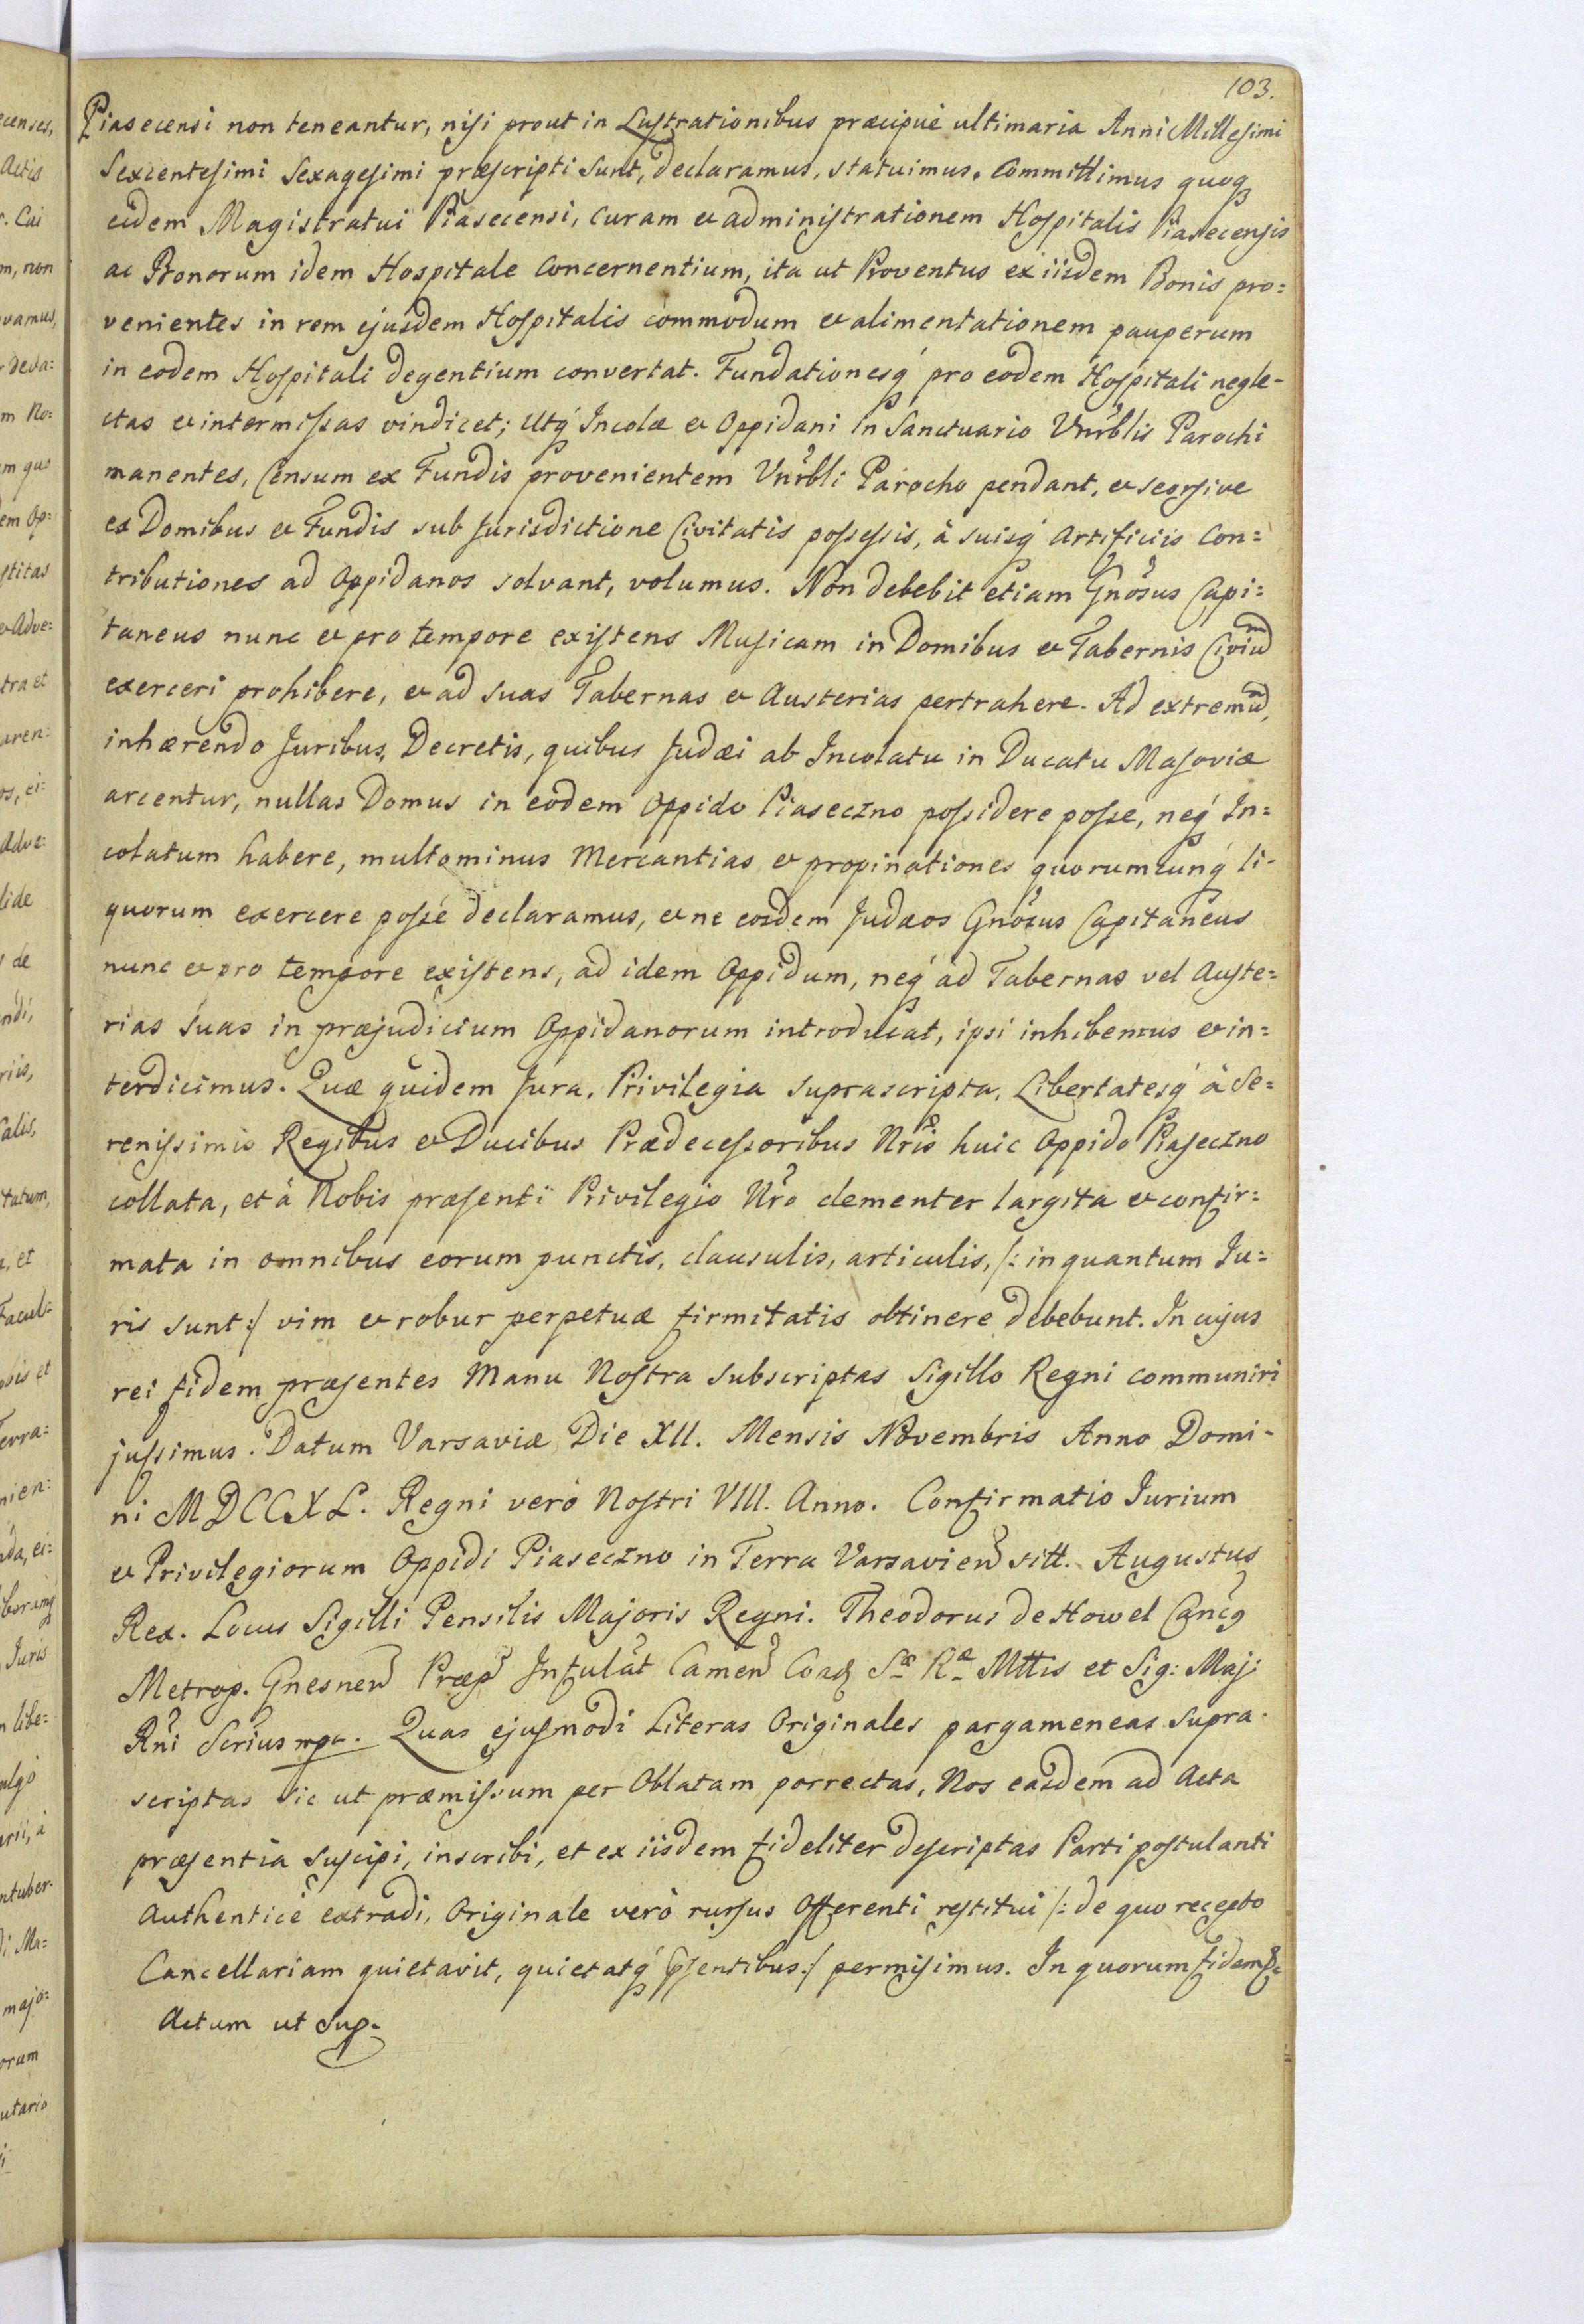 103.
Piasecensi non teneantur, nisi prout in Lustrationibus præcipuè ultimaria Anni Millesimi
Sexcentesimi Sexagesimi præscripti sunt, declaramus, statuimus. Committimus quoq
eidem Magistratui Piasecensi, curam et administrationem Hospitalis Piasecensis
ac Bonorum idem Hospitale concernentium, ita ut Proventus ex iisdem Bonis pro=
venientes in rem ejusdem Hospitalis commodum et alimentationem pauperum
in eodem Hospitali degentium convertat. Fundationesq́ pro eodem Hospitali negle-
ctas et intermissas vindicet; Utq́ Incolæ et Oppidani in Sanctuario Vnrblis Parochi
manentes, Censum ex Fundis provenientem Vnrbli Parocho pendant, et seorsive
ex Domibus et Fundis sub Jurisdictione Civitatis possessis, à suisq́ Artificiis Con=
tributiones ad Oppidanos solvant, volumus. Non debebit etiam Gnosus Capi=
taneus nunc et pro tempore existens Musicam in Domibus et Tabernis Civiu͂
exerceri prohibere, et ad suas Tabernas et Austerias pertrahere. Ad extremu͂,
inhærendo Juribus, Decretis, quibus Judæi ab Incolatu in Ducatu Masoviæ
arcentur, nullas Domus in eodem Oppido Piaseczno possidere posse, neq́ In=
colatum habere, multominus Mercantias et propinationes quorumcunq́ li-
quorum exercere posse declaramus, et ne eosdem Judæos Gnosus Capitaneus
nunc et pro tempore existens, ad idem Oppidum, neq́ ad Tabernas vel Auste=
rias suas in præjudicium Oppidanorum introducat, ipsi inhibemus et in=
terdicimus. Quæ quidem Jura, Privilegia suprascripta, Libertatesq́ à Se=
renissimis Regibus et Ducibus Prædecessoribus Nris huic Oppido Piaseczno
collata, et à Nobis præsenti Privilegio Nro clementer largita et confir=
mata in omnibus eorum punctis, clausulis, articulis, /: in quantum Ju=
ris sunt :/ vim et robur perpetuæ firmitatis obtinere debebunt. In cujus
rei fidem præsentes Manu Nostra subscriptas Sigillo Regni communiri
jussimus. Datum Varsaviæ Die XII. Mensis Novembris Anno Domi-
ni MDCCXL. Regni verò Nostri VIII. Anno. Confirmatio Jurium
et Privilegiorum Oppidi Piaseczno in Terra Varsavien sitt. Augustus
Rex. Locus Sigilli Pensilis Majoris Regni. Theodorus de Howel Canc9
Metrop. Gnesnen Præp Infulat Camen Coad Sæ Ræ Mttis et Sig: Maj:
Rni Scrius mpr. Quas ejusmodi Literas Originales pargameneas supra-
scriptas sic ut præmissum per Oblatam porrectas, Nos easdem ad Acta
præsentia suscipi, inscribi, et ex iisdem fideliter descriptas Parti postulanti
Authenticè extradi, Originale verò rursus Offerenti restitui /: de quo recepto
Cancellariam quietavit, quietatq́ psentibus :/ permisimus. In quorum fidem &c
Actum ut Sup.